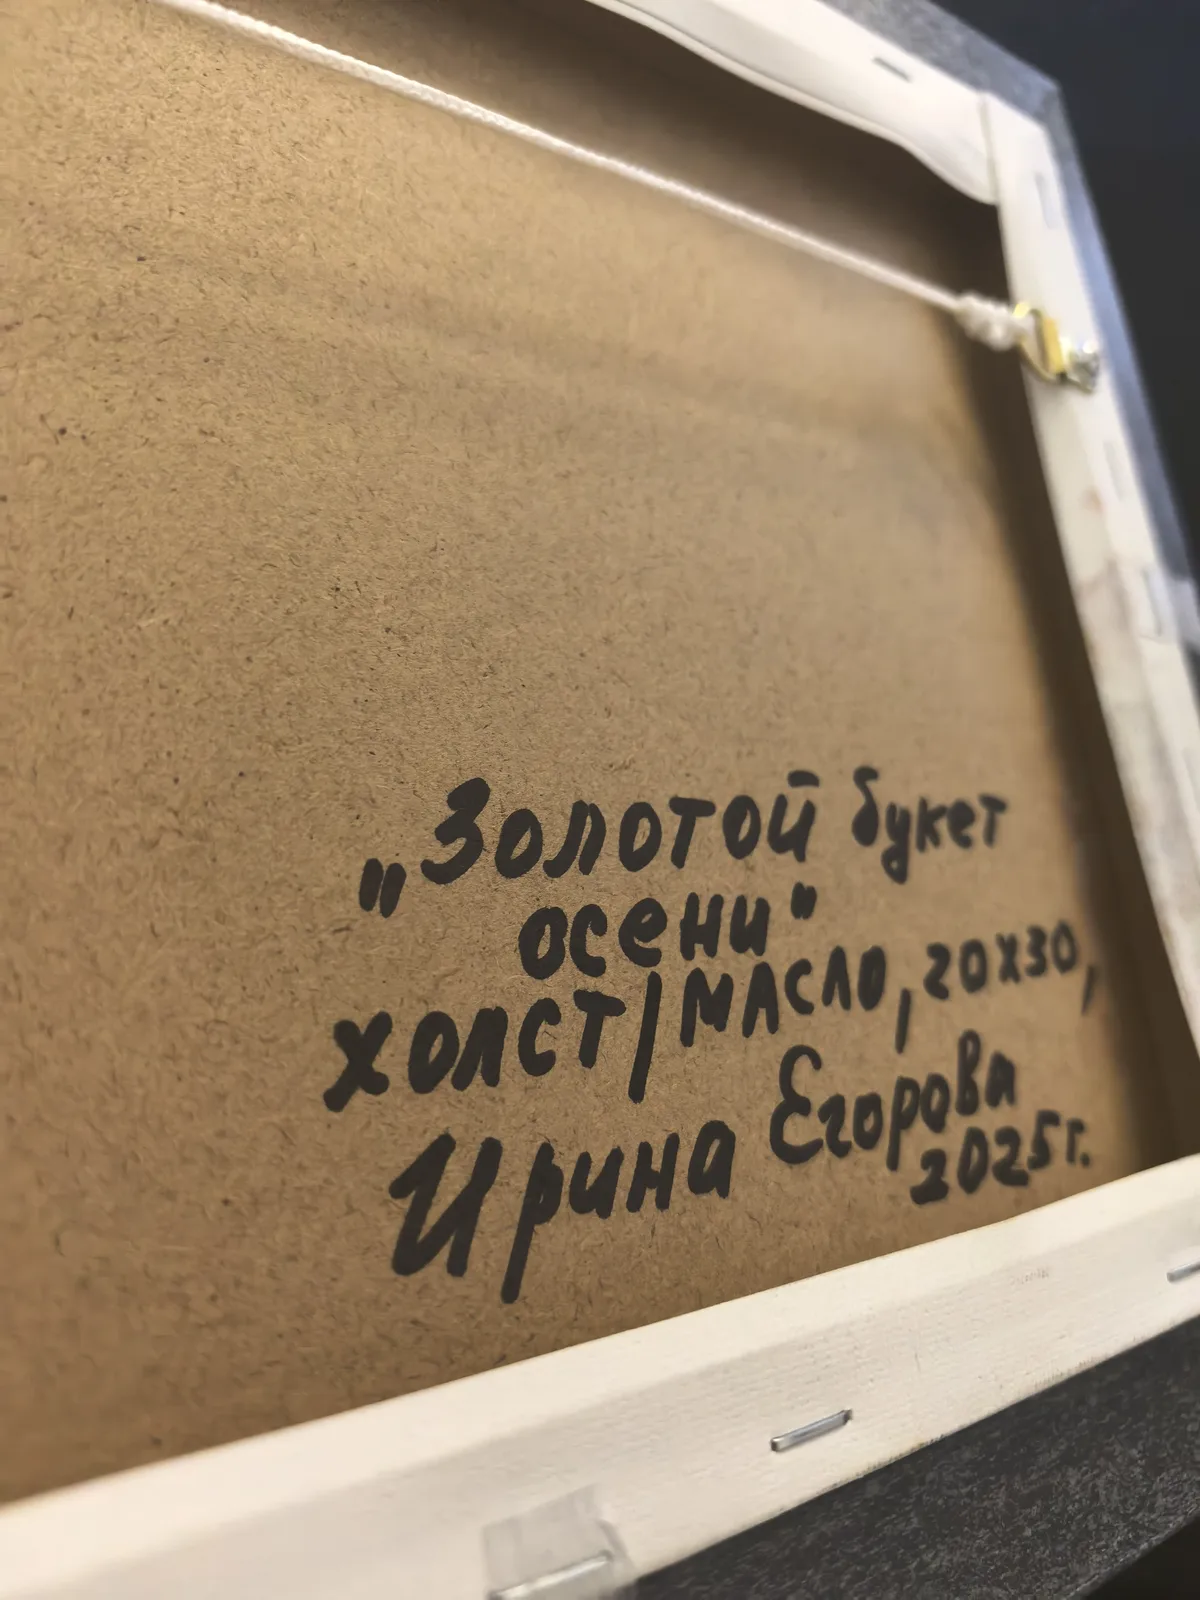 „Золотой букет
осени"
холст/масло, 20х30,
Ирина Егорова
2025г.